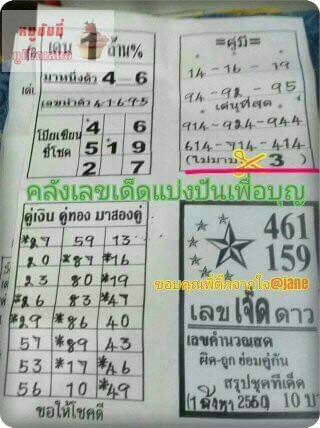 หมูชัยชี่
เด่น 1 ล้าน%
มาหนึ่งตัว 4 - 6
เลขนำตัว 4-1-6-9-5
โป๊ยเซียน
ชี้โชค
4 6
5 1 9
2 7
=คู่มี=
14 - 16 - 19
94 - 92 - 95
เด่นที่สุด
914 - 924 - 944
614 - 714 - 414
(ไม่มา 3)
คลังเลขเด็ดแบ่งปันเพื่อบุญ
คู่เงิน คู่ทอง มาสองคู่
*27 59 13
20 *87 *16
23 80 *19
*26 83 *47
*29 *86 40
57 *89 43
53 *17 *46
56 10 *49
ขอให้โชคดี
461
159
@jane
เลข เจ็ด ดาว
เลขคำนวณสด
ผิด-ถูก ย่อมคู่กัน
สรุปชุดทีเด็ด
2560) 10 บาท